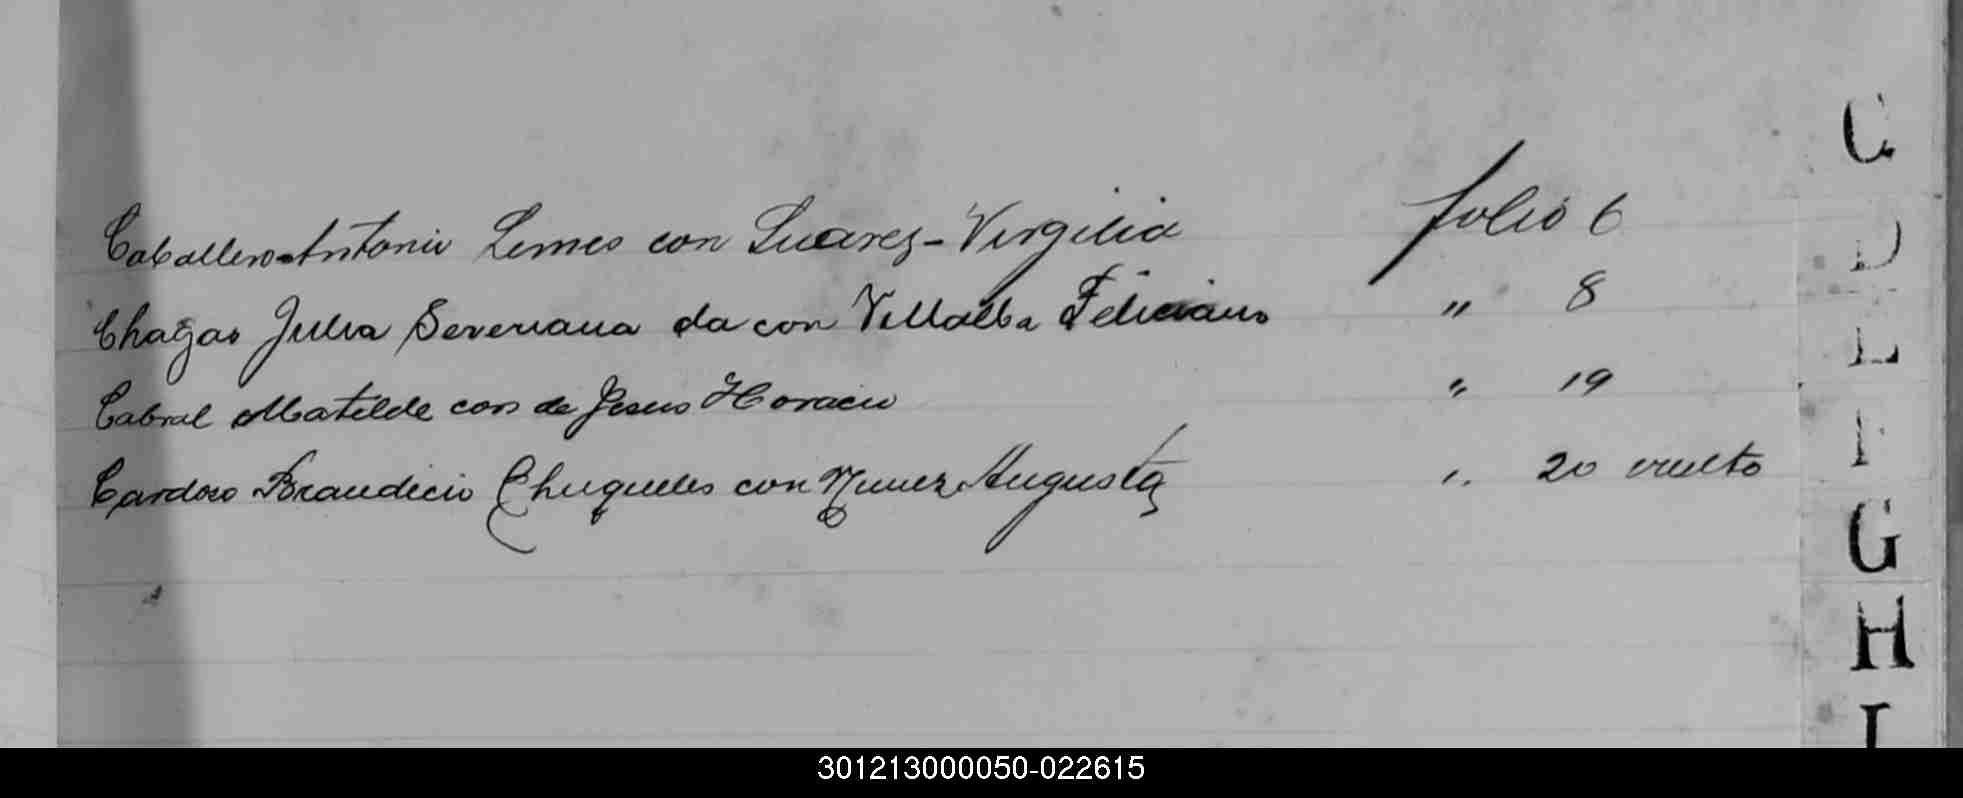 Caballero-Antonio Lemes con Suarez-Virgilia folio 6
Chagas Julia Severiana da con Villalba Feliciano " 8
Cabral Matilde con de Jesus Horacio " 19
Cardoso Brandicio Chuqueles con Nunez Augusta " 20 vuelto
C
D
E
F
G
H
I
301213000050-022615